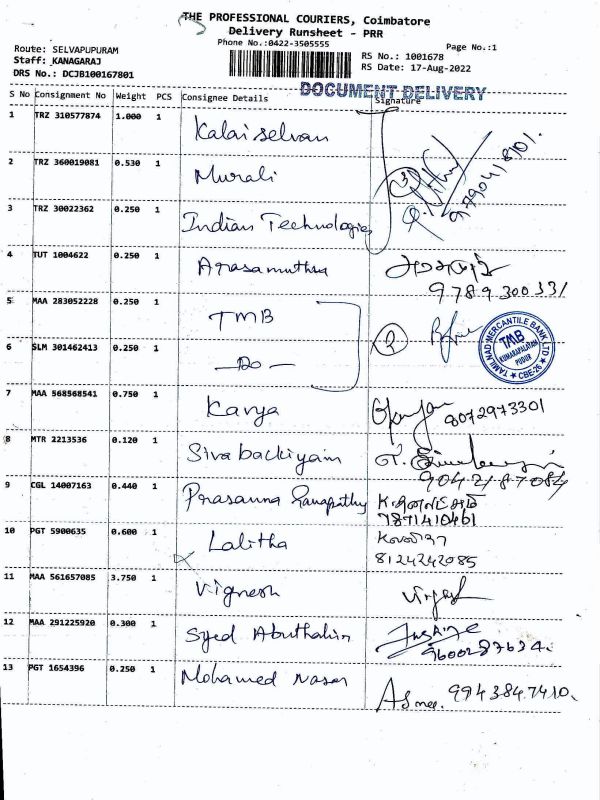 THE PROFESSIONAL COURIERS, Coimbatore
Delivery Runsheet - PRR
Phone No.:0422-3505555
Page No.:1
Route: SELVAPUPURAM
Staff: KANAGARAJ
DRS No.: DCJB100167801
RS No.: 1001678
RS Date: 17-Aug-2022
DOCUMENT DELIVERY
S No Consignment No Weight PCS Consignee Details Signature
1 TRZ 310577874 1.000 1 Kalai selvan
2 TRZ 360019081 0.530 1 Murali
3 TRZ 30022362 0.250 1 Indian Technologies
3
4 TUT 1004622 0.250 1 Arasamuthu
9789300331
5 MAA 283052228 0.250 1 TMB
6 SLM 301462413 0.250 1 - Do -
2
TAMILNAD MERCANTILE BANK LTD
TMB
KUMARAPALAYAM
PUDUR
CBE-26
7 MAA 568568541 0.750 1 Kavya 8072973301
8 MTR 2213536 0.120 1 Sivabackiyam
9042187084
9 CGL 14007163 0.440 1 Prasanna Ganapathy
7871410461
10 PGT 5900635 0.600 1 Lalitha
8124242085
11 MAA 561657085 3.750 1 Vignesh
12 MAA 291225920 0.300 1 Syed Abuthahir
9600287634.
13 PGT 1654396 0.250 1 Mohamed Naser 9943847410.